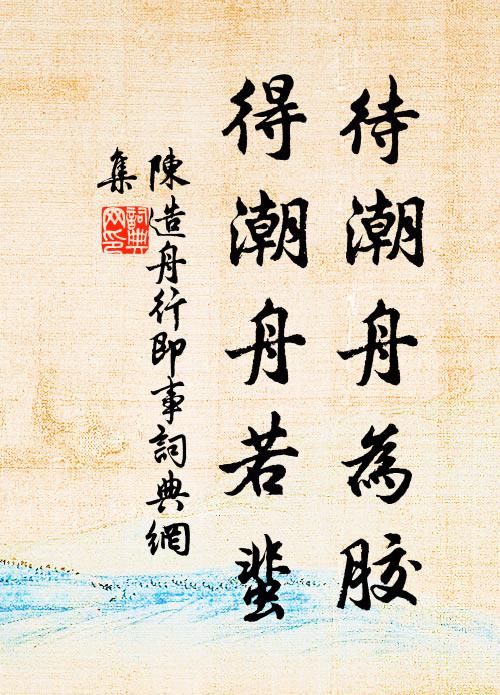 待潮舟為膠
得潮舟若蜚
陳造舟行即事詞典網
集
詞典
网印